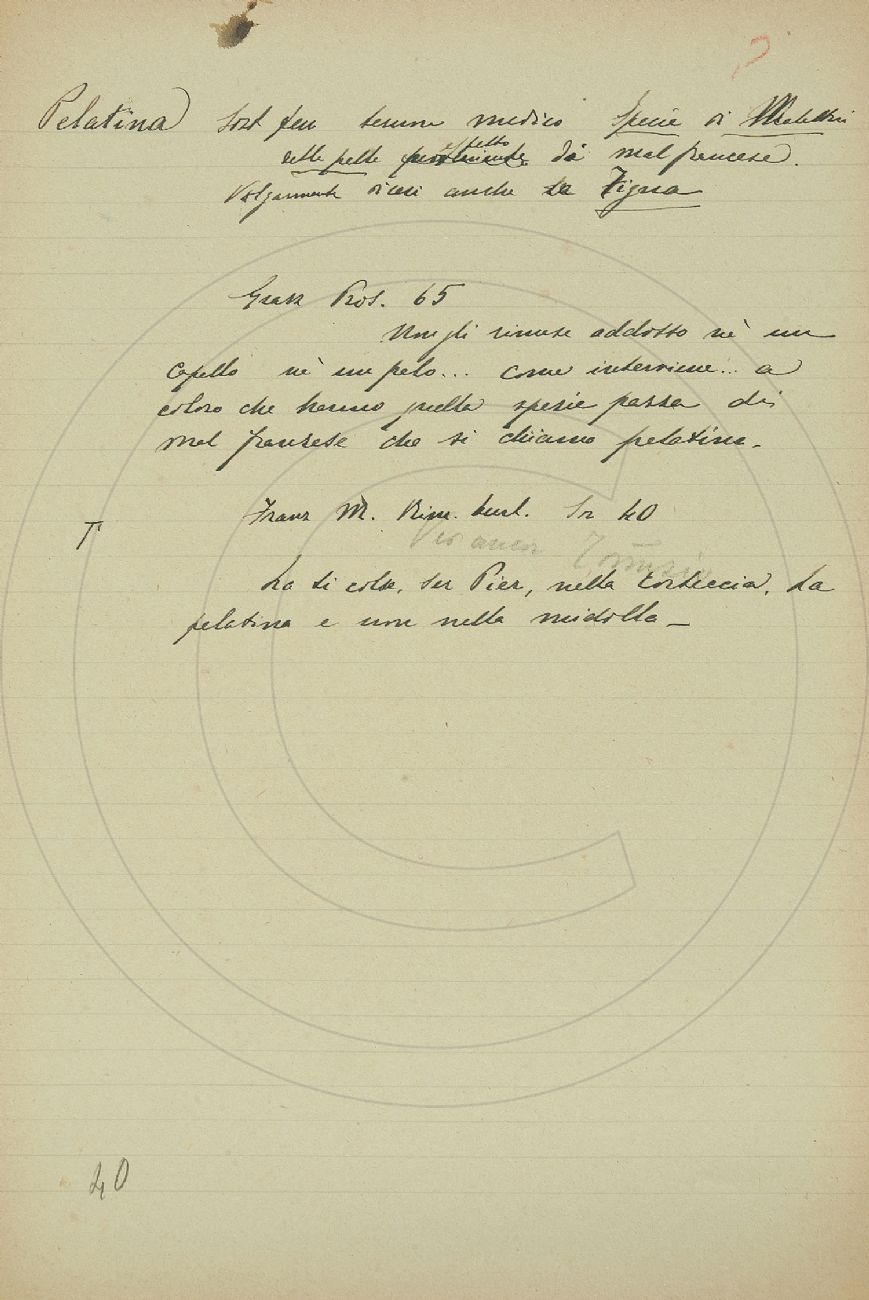 Pelatina Sost fem termine medico Specie di Malattia
della pelle effetto di mal francese.
Volgarmente dicesi anche La Tigna
Graz Pros. 65
Non gli rimase addosso nè un
capello nè un pelo... come interviene... a
coloro che hanno quella spezie pazza di
mal franzese che si chiama pelatina.
Franz M. Rim. burl. Sr 40
La ti colse, Ser Pier, nella corteccia, La
pelatina e non nella midolla_
40